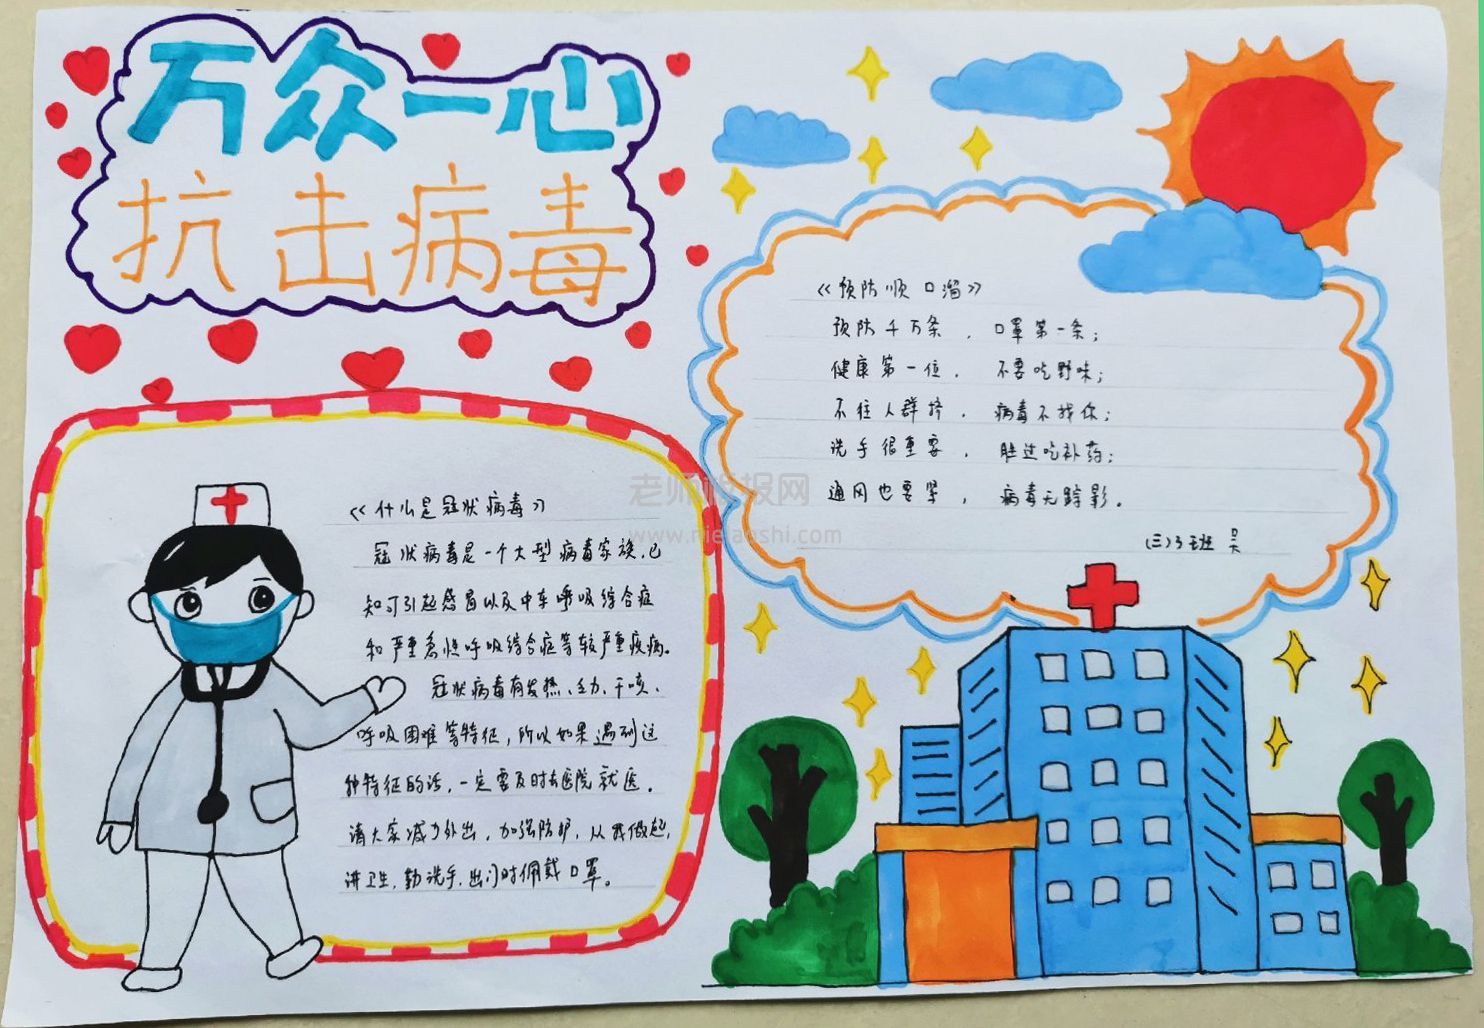 万众一心
抗击病毒
《预防顺口溜》
预防千万条，口罩第一条；
健康第一位，不要吃野味；
不往人群挤，病毒不找你；
洗手很重要，胜过吃补药；
通风也要早，病毒无踪影。
(三)3班 吴
《什么是冠状病毒》
冠状病毒是一个大型病毒家族，已
知可引起感冒以及中东呼吸综合症
和严重急性呼吸综合症等较严重疾病。
冠状病毒有发热、乏力、干咳、
呼吸困难等特征，所以如果遇到这
种特征的话，一定要及时去医院就医。
请大家减少外出，加强防护，从我做起，
讲卫生，勤洗手，出门时佩戴口罩。
老师板报网